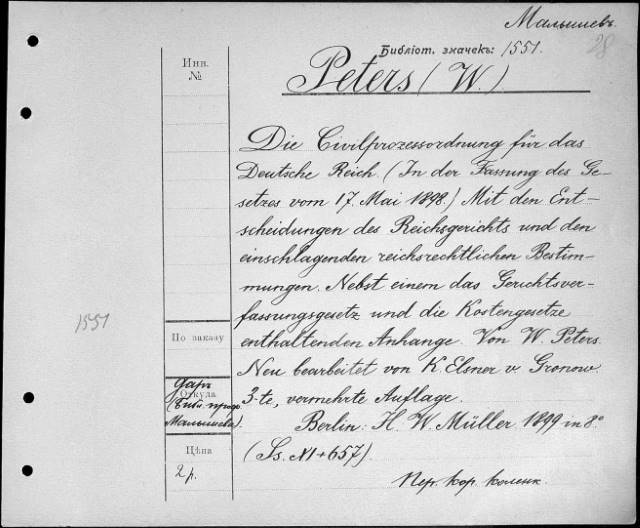 Малышевъ
28
Библіот. значекъ: 1551.
Инв.
№
Peters (W.)
Die Civilprozessordnung für das
Deutsche Reich. (In der Fassung des Ge-
setzes vom 17. Mai 1898.) Mit den Ent-
scheidungen des Reichsgerichts und den
einschlagenden reichsrechtlichen Bestim-
mungen. Nebst einem das Gerichtsver-
fassungsgesetz und die Kostengesetze
enthaltenden Anhange. Von W. Peters.
Neu bearbeitet von K. Elsner v. Gronow.
3-te, vermehrte Auflage.
Berlin. H. W. Müller 1899 in 8°
(Ss. XI+657).
Пер. кор. коленк.
1551
По заказу
Откуда
Даръ
(Библ. проф.
Малышева).
Цѣна
2 р.